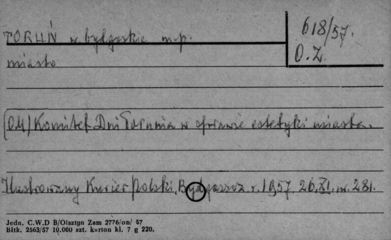 TORUŃ w. bydgoskie m.p.
618/57.
O.Z.
miasto
[OM/Komitet Dni Torunia w sprawie estetyki miasta.
Ilustrowany Kurier Polski, Bydgoszcz r. 1957 26.XI. nr. 281.
Jedn. C.W.D B/Olsztyn Zam 2776/on/ 57
Bltk. 2563/57 10.000 szt. karton kl. 7 g 220.